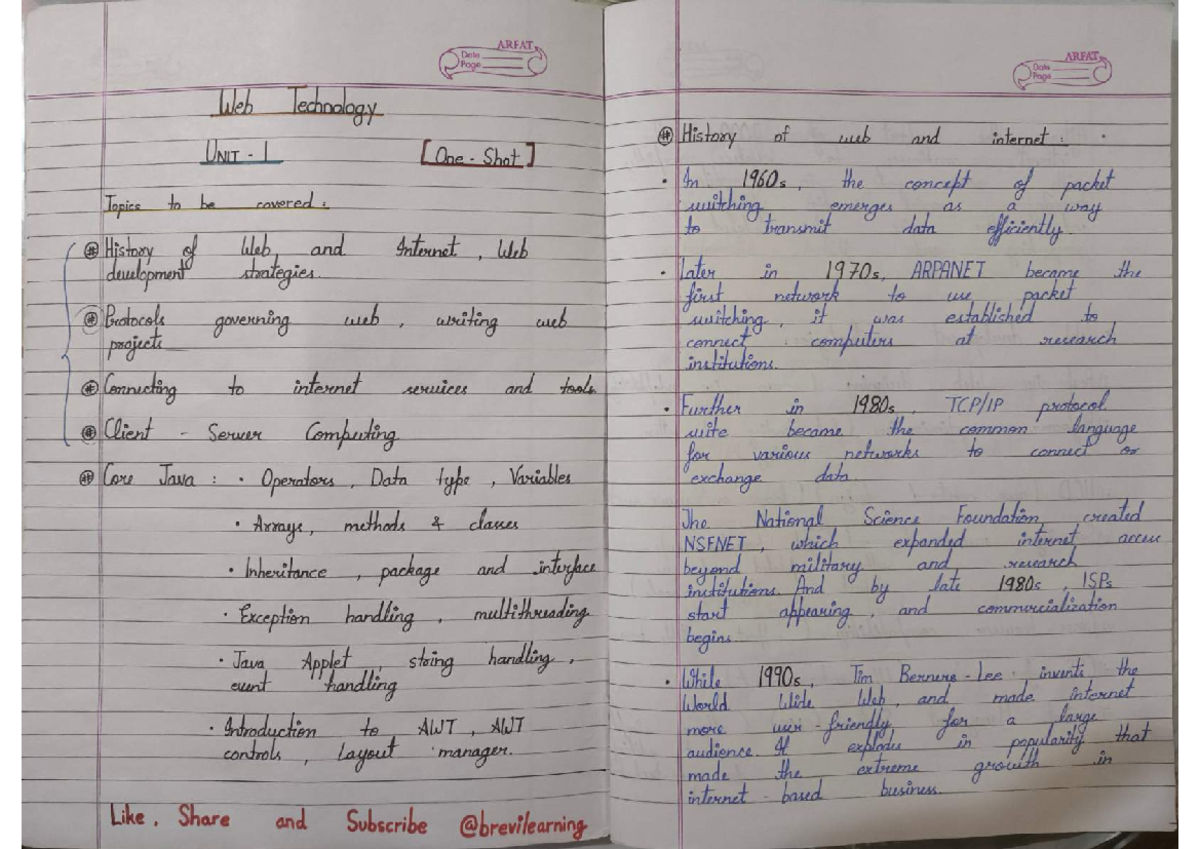 ARFAT
Date
Page
Web Technology
UNIT - 1 [One - Shot]
Topics to be covered :
# History of Web, and Internet, Web
development strategies.
# Protocols governing web, writing web
projects
# Connecting to internet services and tools.
# Client - Server Computing
# Core Java : • Operators, Data type, Variables
• Arrays, methods & classes
• Inheritance, package and interface
• Exception handling, multithreading
• Java Applet, string handling,
event handling
• Introduction to AWT, AWT
controls, Layout manager.
Like, Share and Subscribe @brevilearning
ARFAT
Date
Page
# History of web and internet :
• In 1960s, the concept of packet
switching emerges as a way
to transmit data efficiently.
• Later in 1970s, ARPANET became the
first network to use packet
switching, it was established to
connect computers at research
institutions.
• Further in 1980s, TCP/IP protocol
suite became the common language
for various networks to connect or
exchange data.
The National Science Foundation, created
NSFNET, which expanded internet access
beyond military and research
institutions. And by late 1980s, ISPs
start appearing, and commercialization
begins.
• While 1990s, Tim Berners-Lee invents the
World Wide Web, and made internet
more user-friendly for a large
audience. It explodes in popularity that
made the extreme growth in
internet-based business.